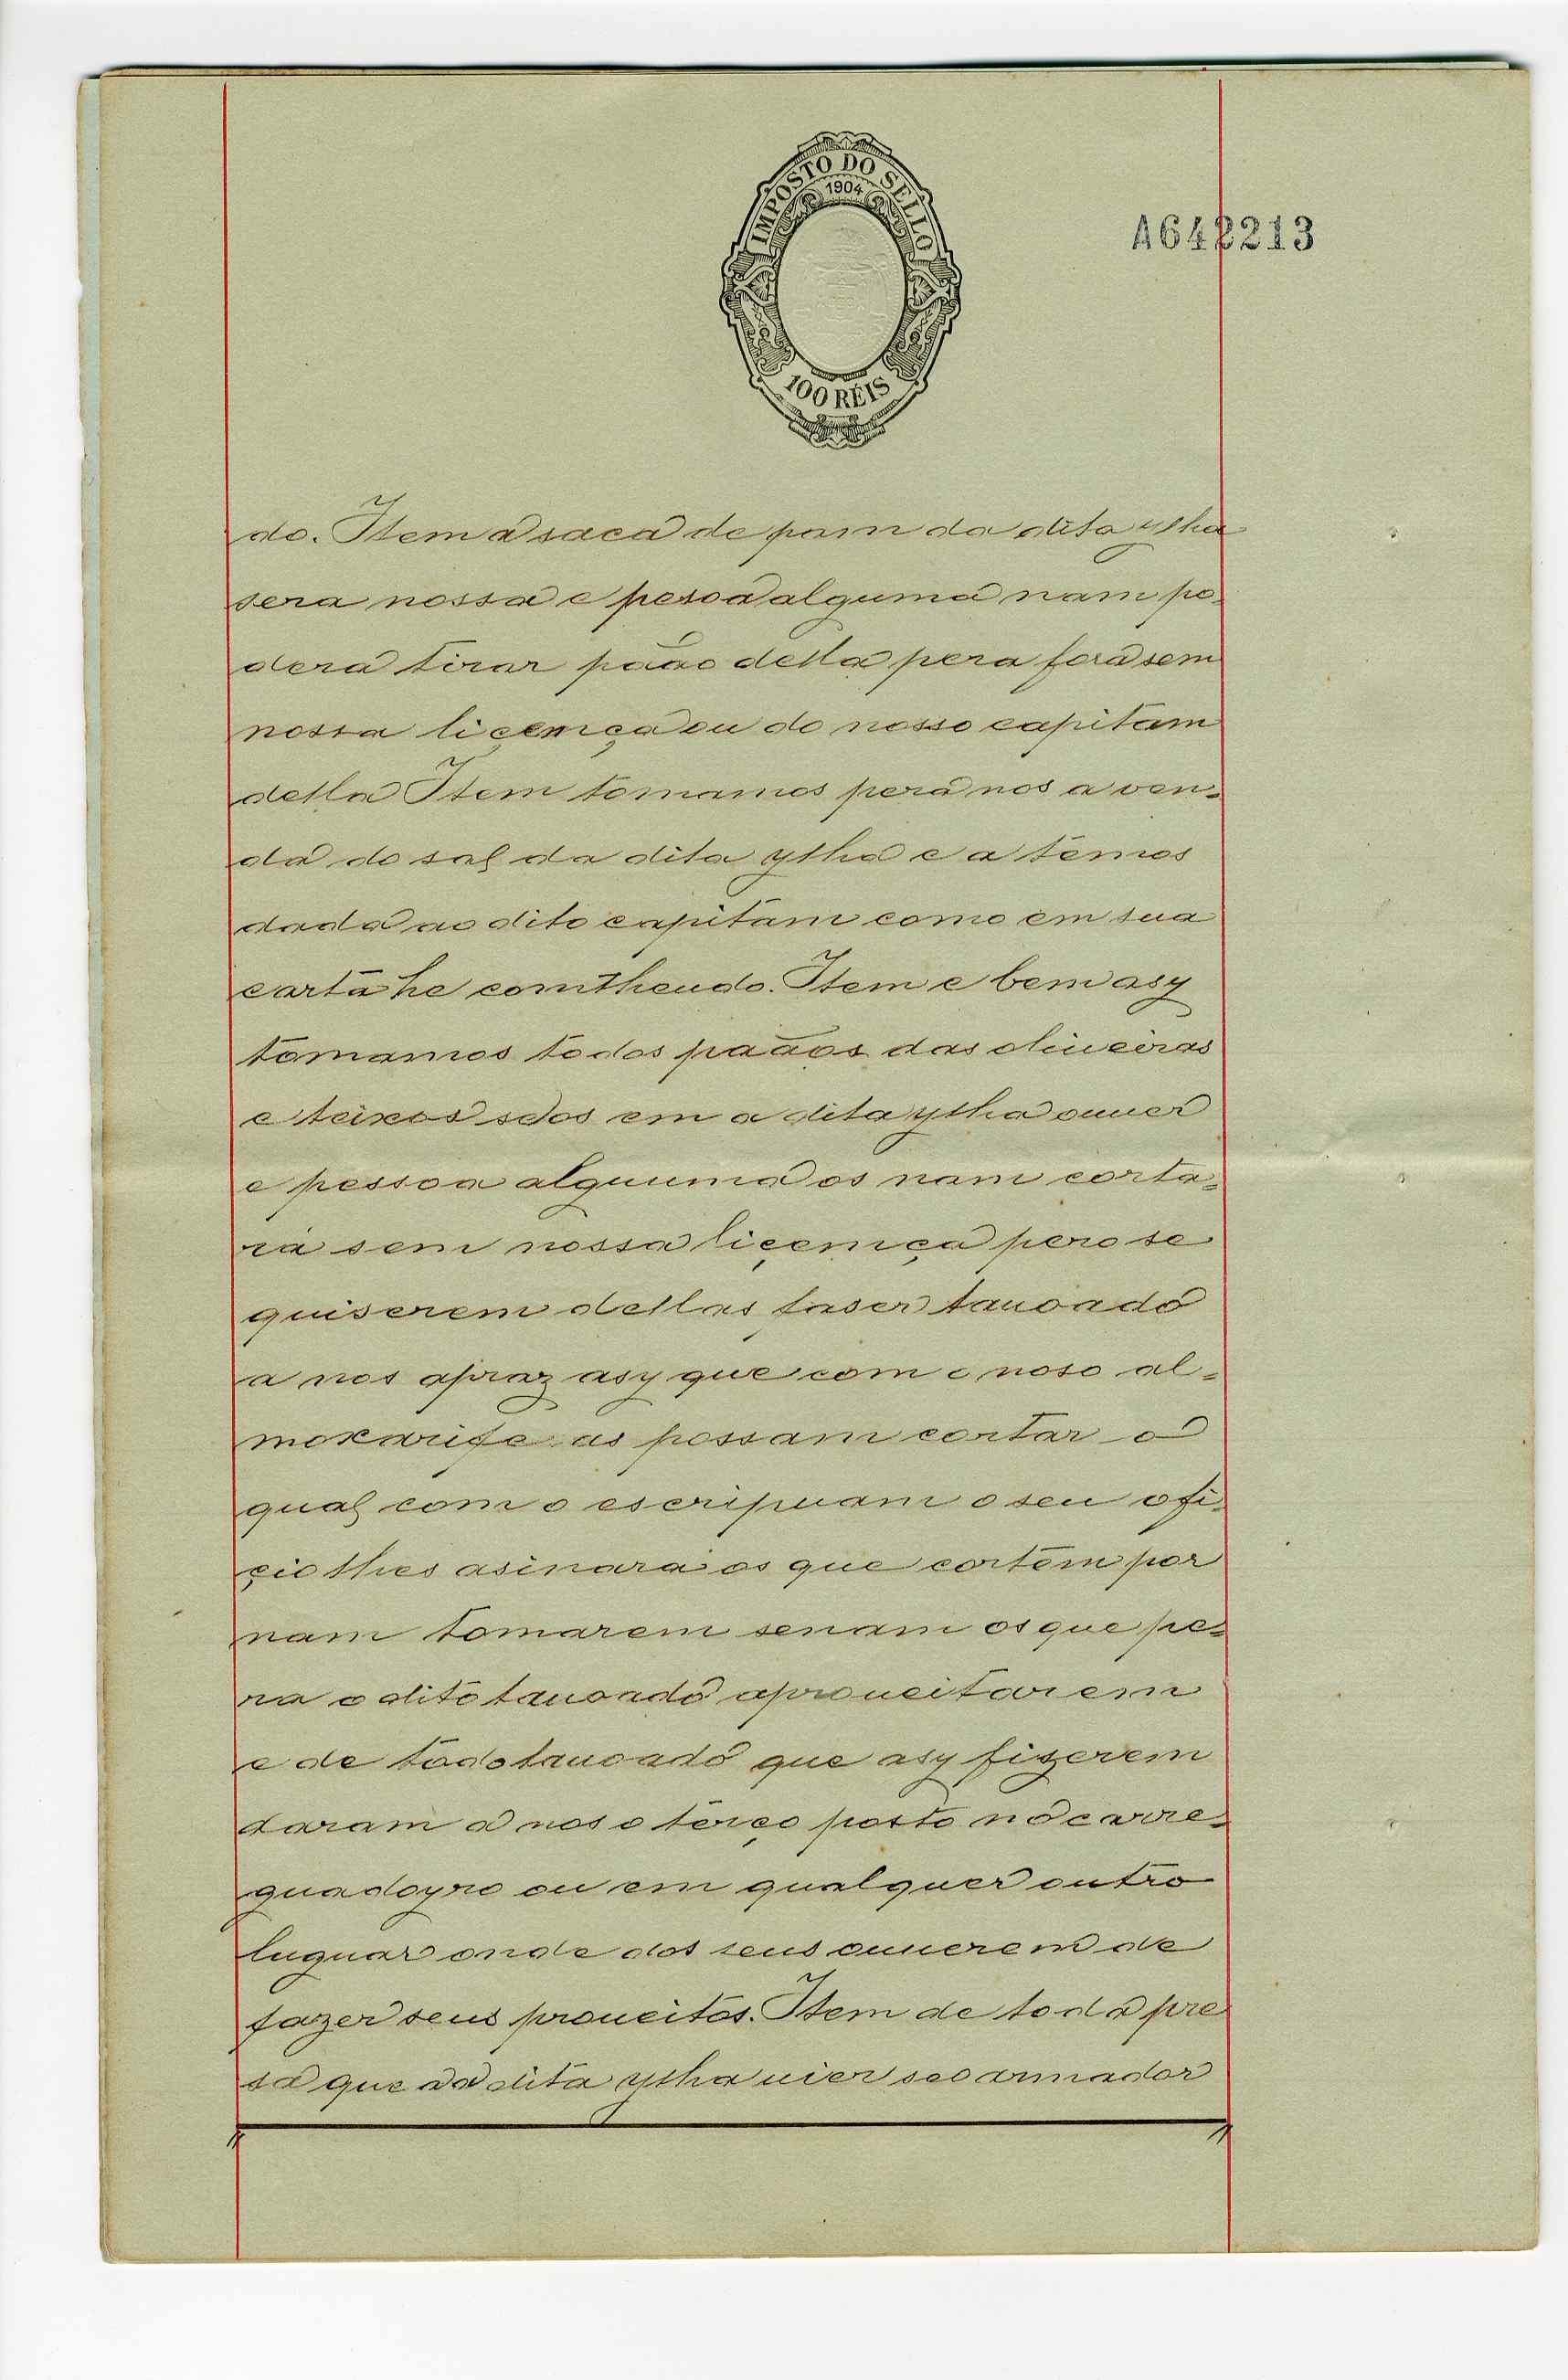 IMPOSTO DO SELLO
1904
100 RÉIS
A642213
do. Item a saca de pam da dita ylha
sera nossa e pesoa alguma nam po-
dera tirar pãao della pera fora sem
nossa liçemça ou do nosso capitam
della Item tomamos pera nos a ven-
da do sal da dita ylha e a temos
dada ao dito capitam como em sua
carta he comtheudo. Item e bem asy
tomamos todos paãos das oliueiras
e teixos sdos em a dita ylha ouuer
e pessoa alguuma os nam corta-
ra sem nossa liçemça pero se
quiserem dellas faser tauoado
a nos apraz asy que com o noso al-
moxarife as possam cortar o
qual com o escripuam o seu ofi-
çio lhes asinara os que cortem por
nam tomarem senam os que pe-
ra o dito tauoado aproueitarem
e de todo tauoado que asy fizerem
daram a nos o terço posto no carre-
guadoyro ou em qualquer outro
luguar onde dos seus ouuerem de
fazer seus proueitos. Item de toda pre
sa que aa dita ylha uier seo armador